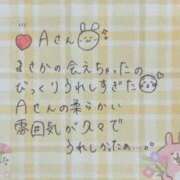 Aさん
まさかの会えちゃったの
びっくりうれしすぎた
Aさんの柔らかい
雰囲気が久々で
うれしかったぁ…